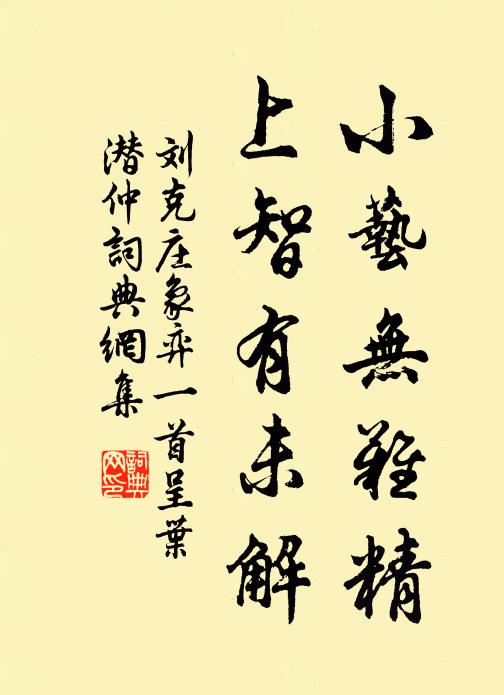 小藝無難精
上智有未解
刘克庄象弈一首呈葉
潜仲詞典網集
詞典网印